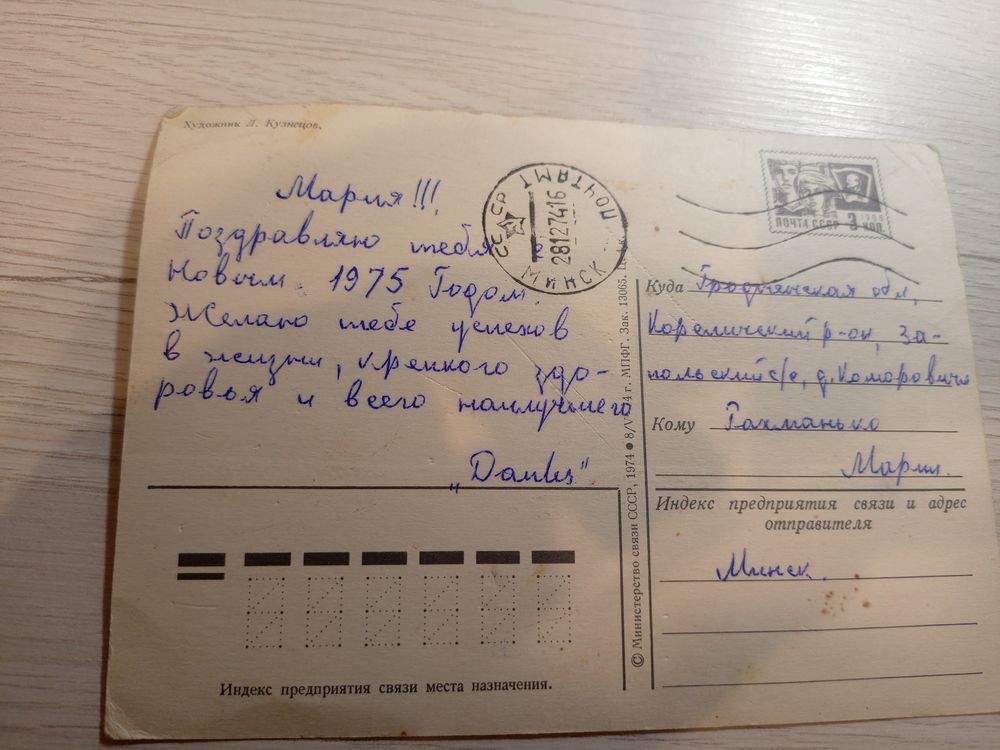 Художник Л. Кузнецов.
Мария!!!
Поздравляю тебя с
Новым 1975 Годом.
Желаю тебе успехов
в жизни, крепкого здо-
ровья и всего наилучшего
СССР МИНСК ПОЧТАМТ
28127416
ПОЧТА СССР 3 КОП.
1966
Куда Гродненская обл,
Кореличский р-он, За-
польский с/с, д. Комаровичи
Кому Рахманько
Мария.
Индекс предприятия связи и адрес
отправителя
Минск.
© Министерство связи СССР, 1974 ● 8/V 74 г. МПФГ. Зак. 13065.
Индекс предприятия связи места назначения.